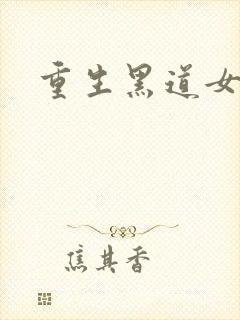 重生黑道女
焦其香